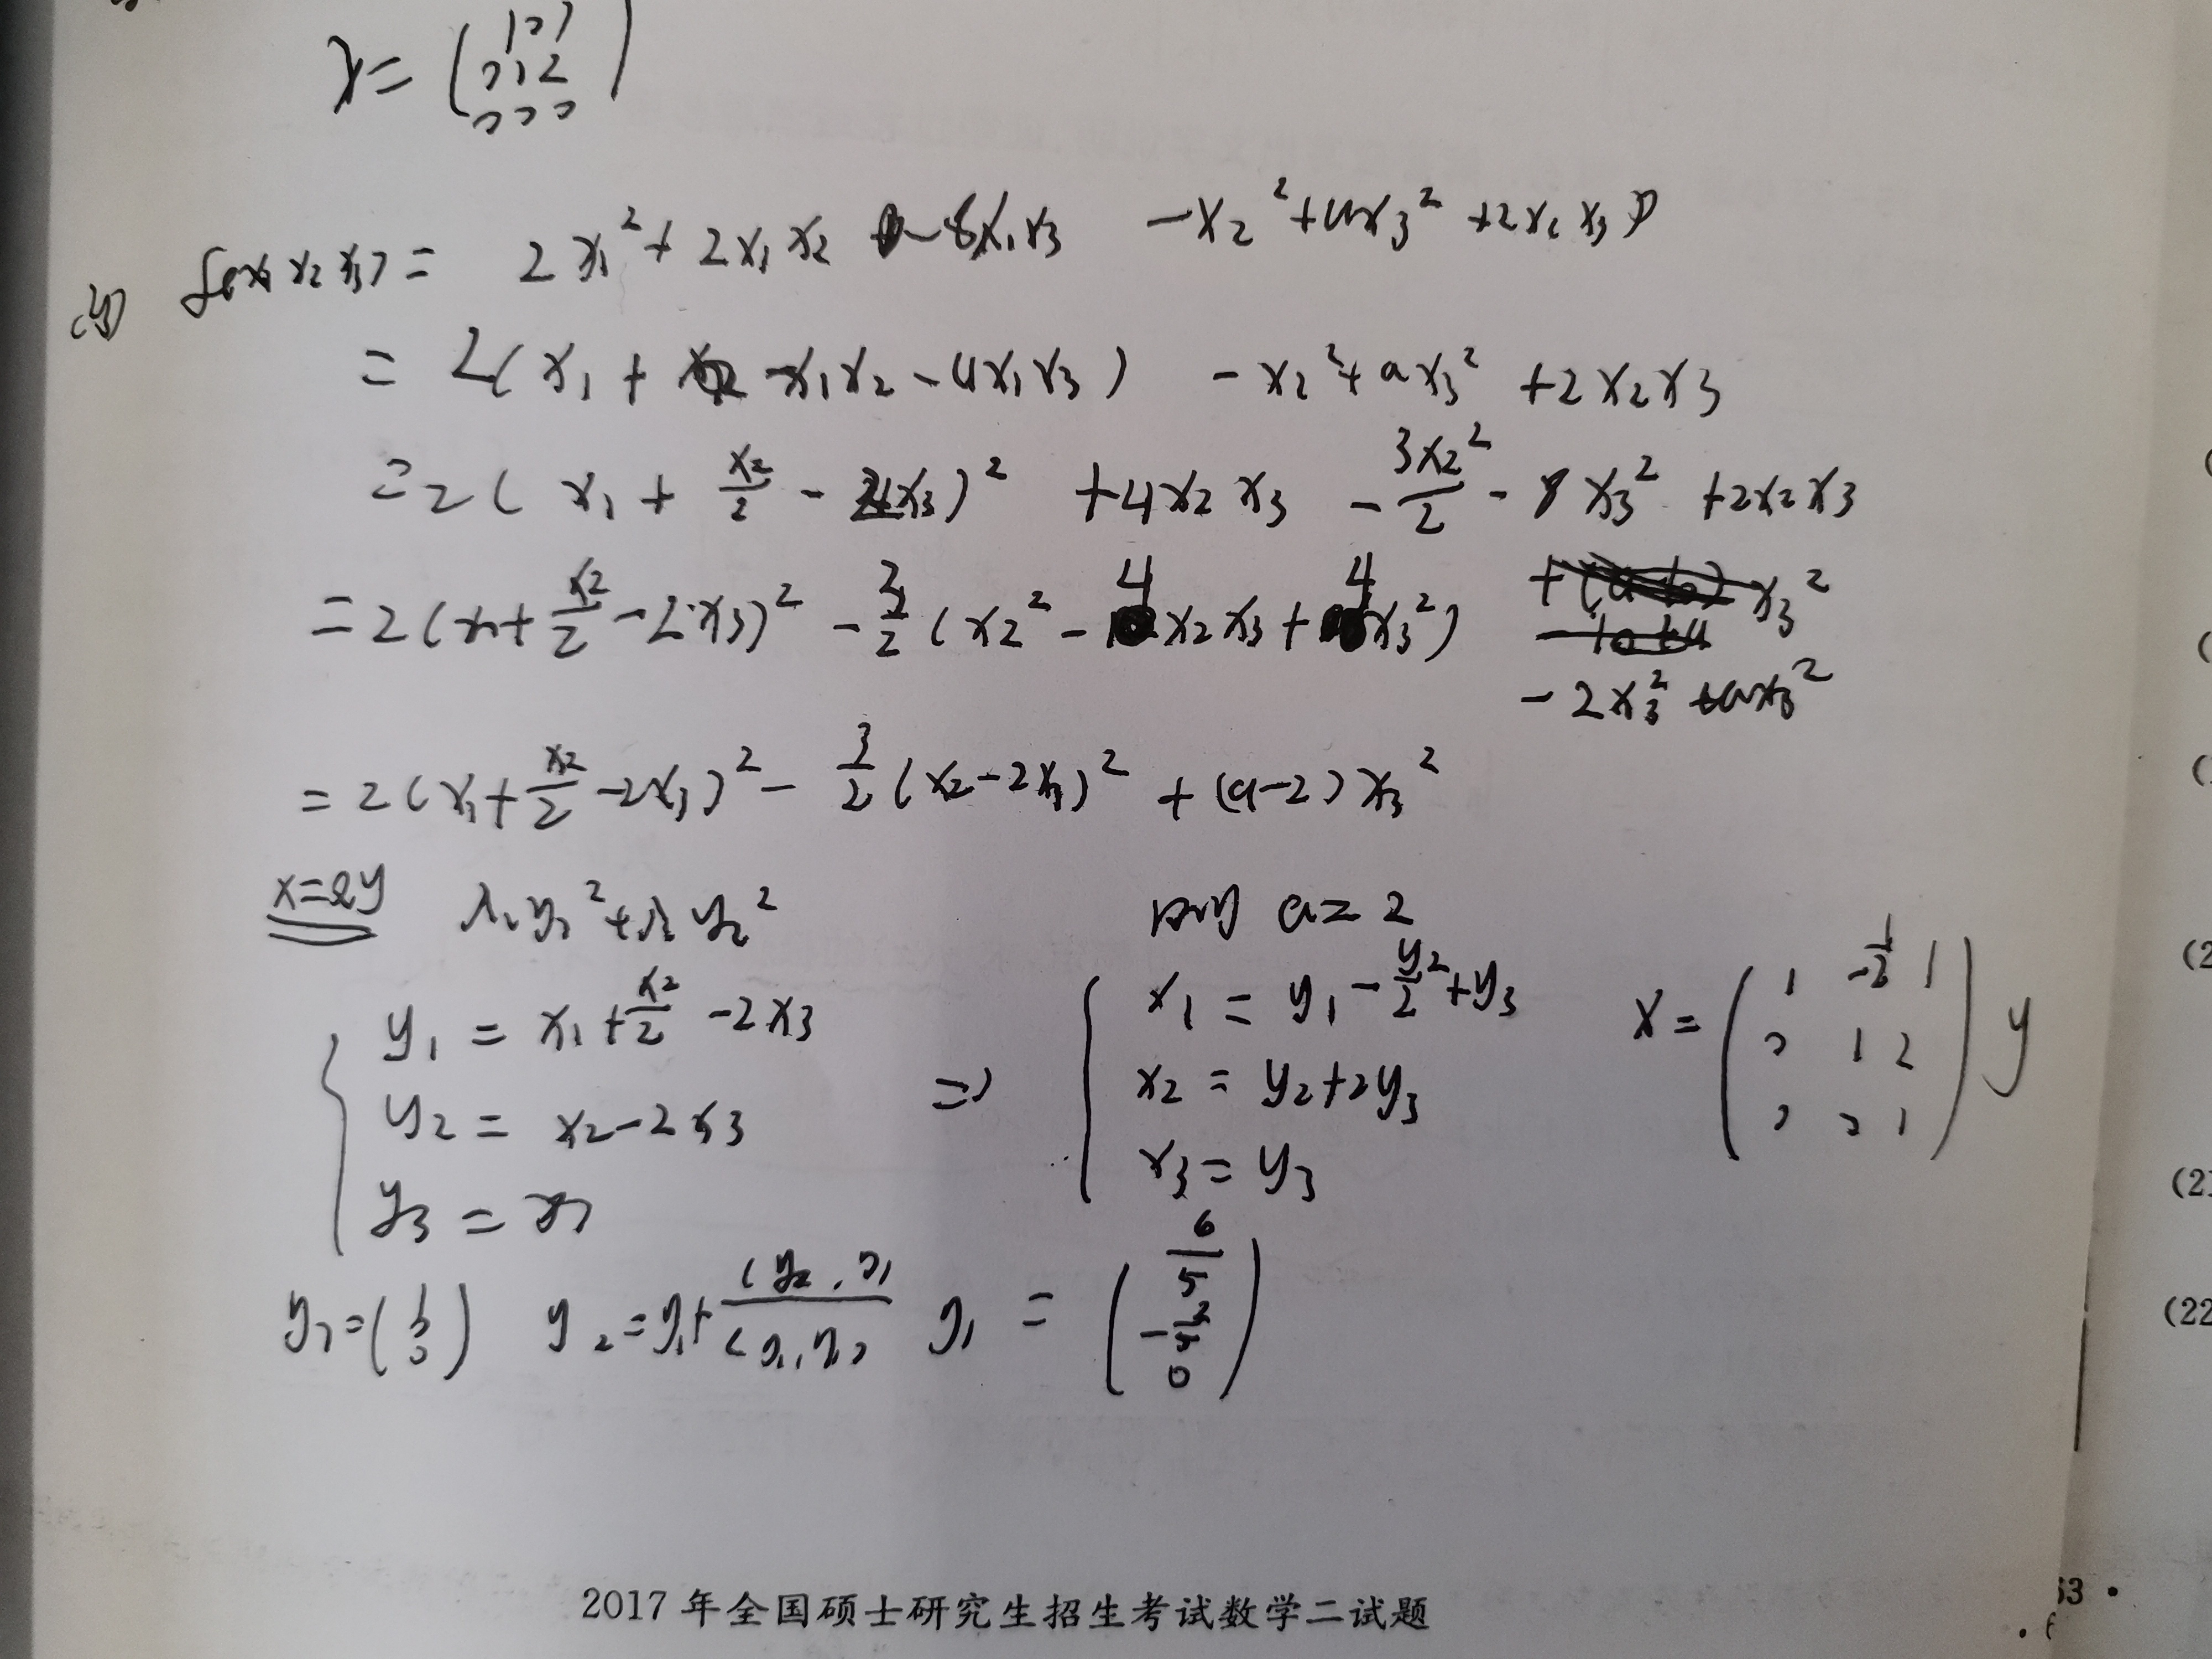 f(x1 x2 x3) = 2x1² + 2x1x2 - 8x1x3 - x2² + ax3² + 2x2x3
= 2(x1 + x1x2 - 4x1x3) - x2² + ax3² + 2x2x3
= 2(x1 + x2/2 - 2x3)² + 4x2x3 - 3x2²/2 - 8x3² + 2x2x3
= 2(x1 + x2/2 - 2x3)² - 3/2(x2² - 4x2x3 + 4x3²) x3²
- 2x3² + ax3²
= 2(x1 + x2/2 - 2x3)² - 3/2(x2 - 2x3)² + (a-2)x3²
x=Qy λ1y1² + λ2y2² a = 2
y1 = x1 + x2/2 - 2x3 => x1 = y1 - y2/2 + y3 x = (1 -1/2 1
y2 = x2 - 2x3 x2 = y2 + 2y3 0 1 2
y3 = x3 x3 = y3 0 0 1) y
y2 = y1 + (y2, y1)/(y1, y1) y1 = (6/5
0)
2017 年全国硕士研究生招生考试数学二试题
63 ·
(2
(21
(22